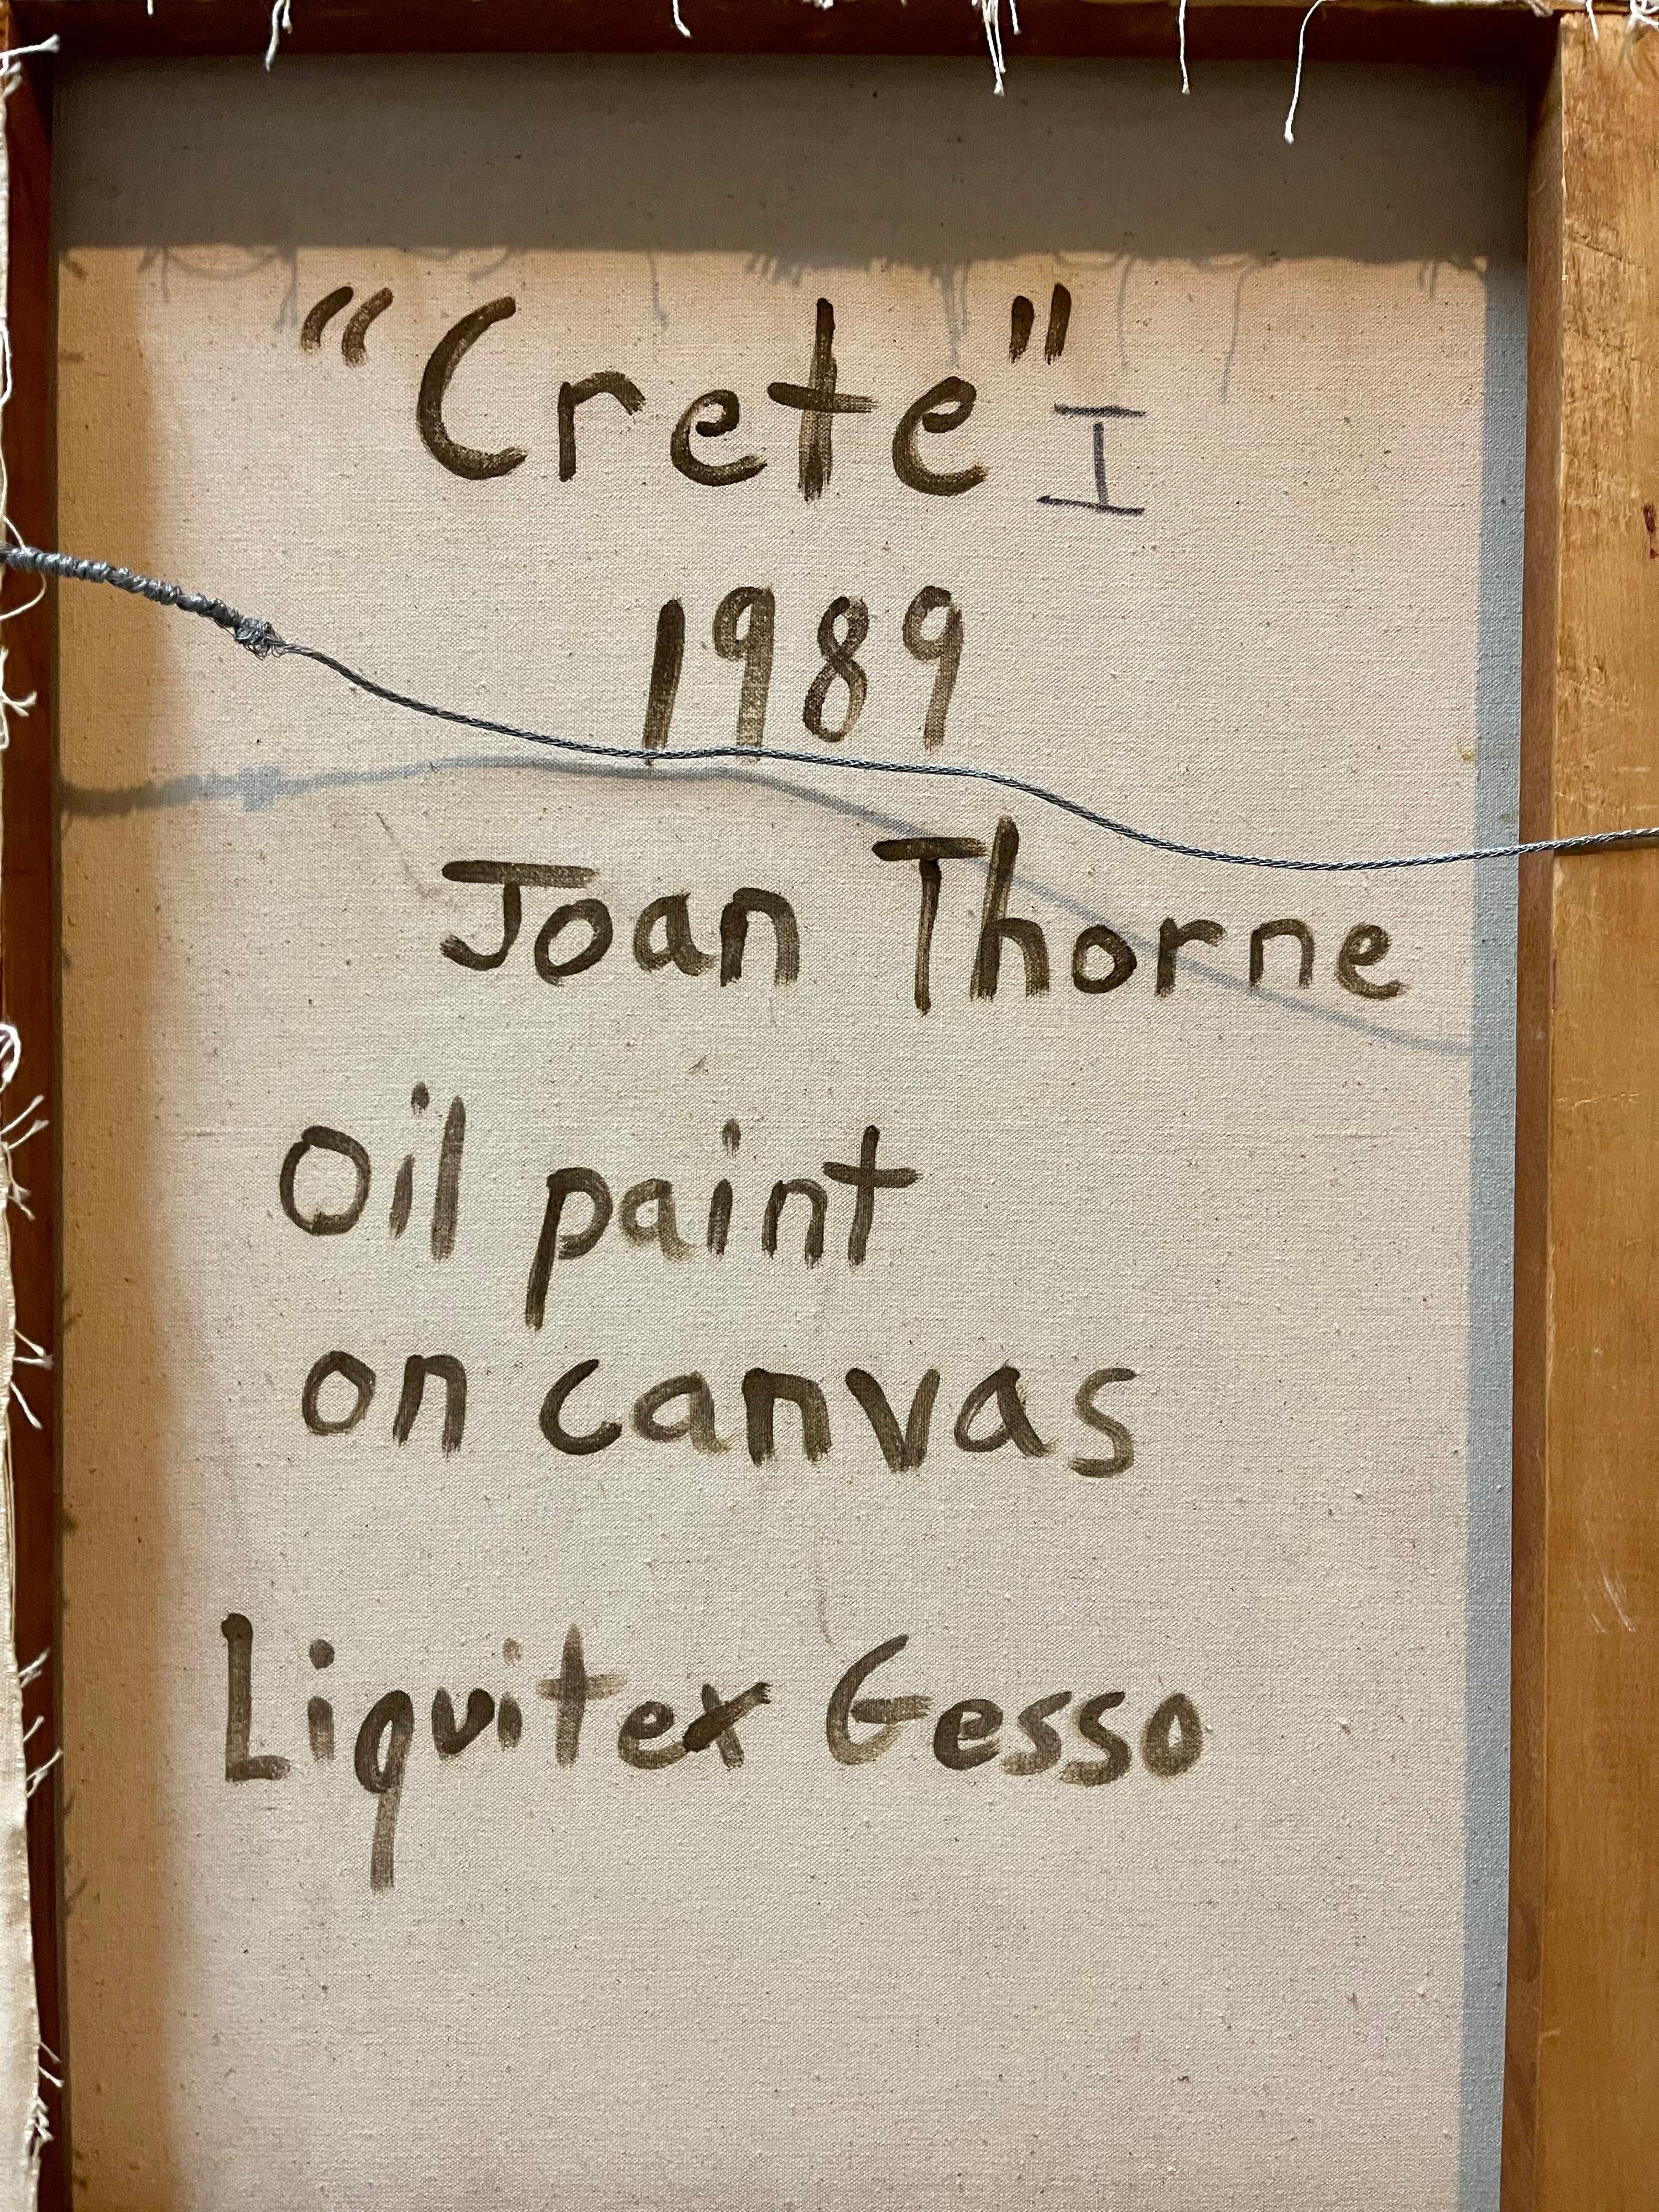 "Crete" I
1989
Joan Thorne
Oil paint
on canvas
Liquitex Gesso